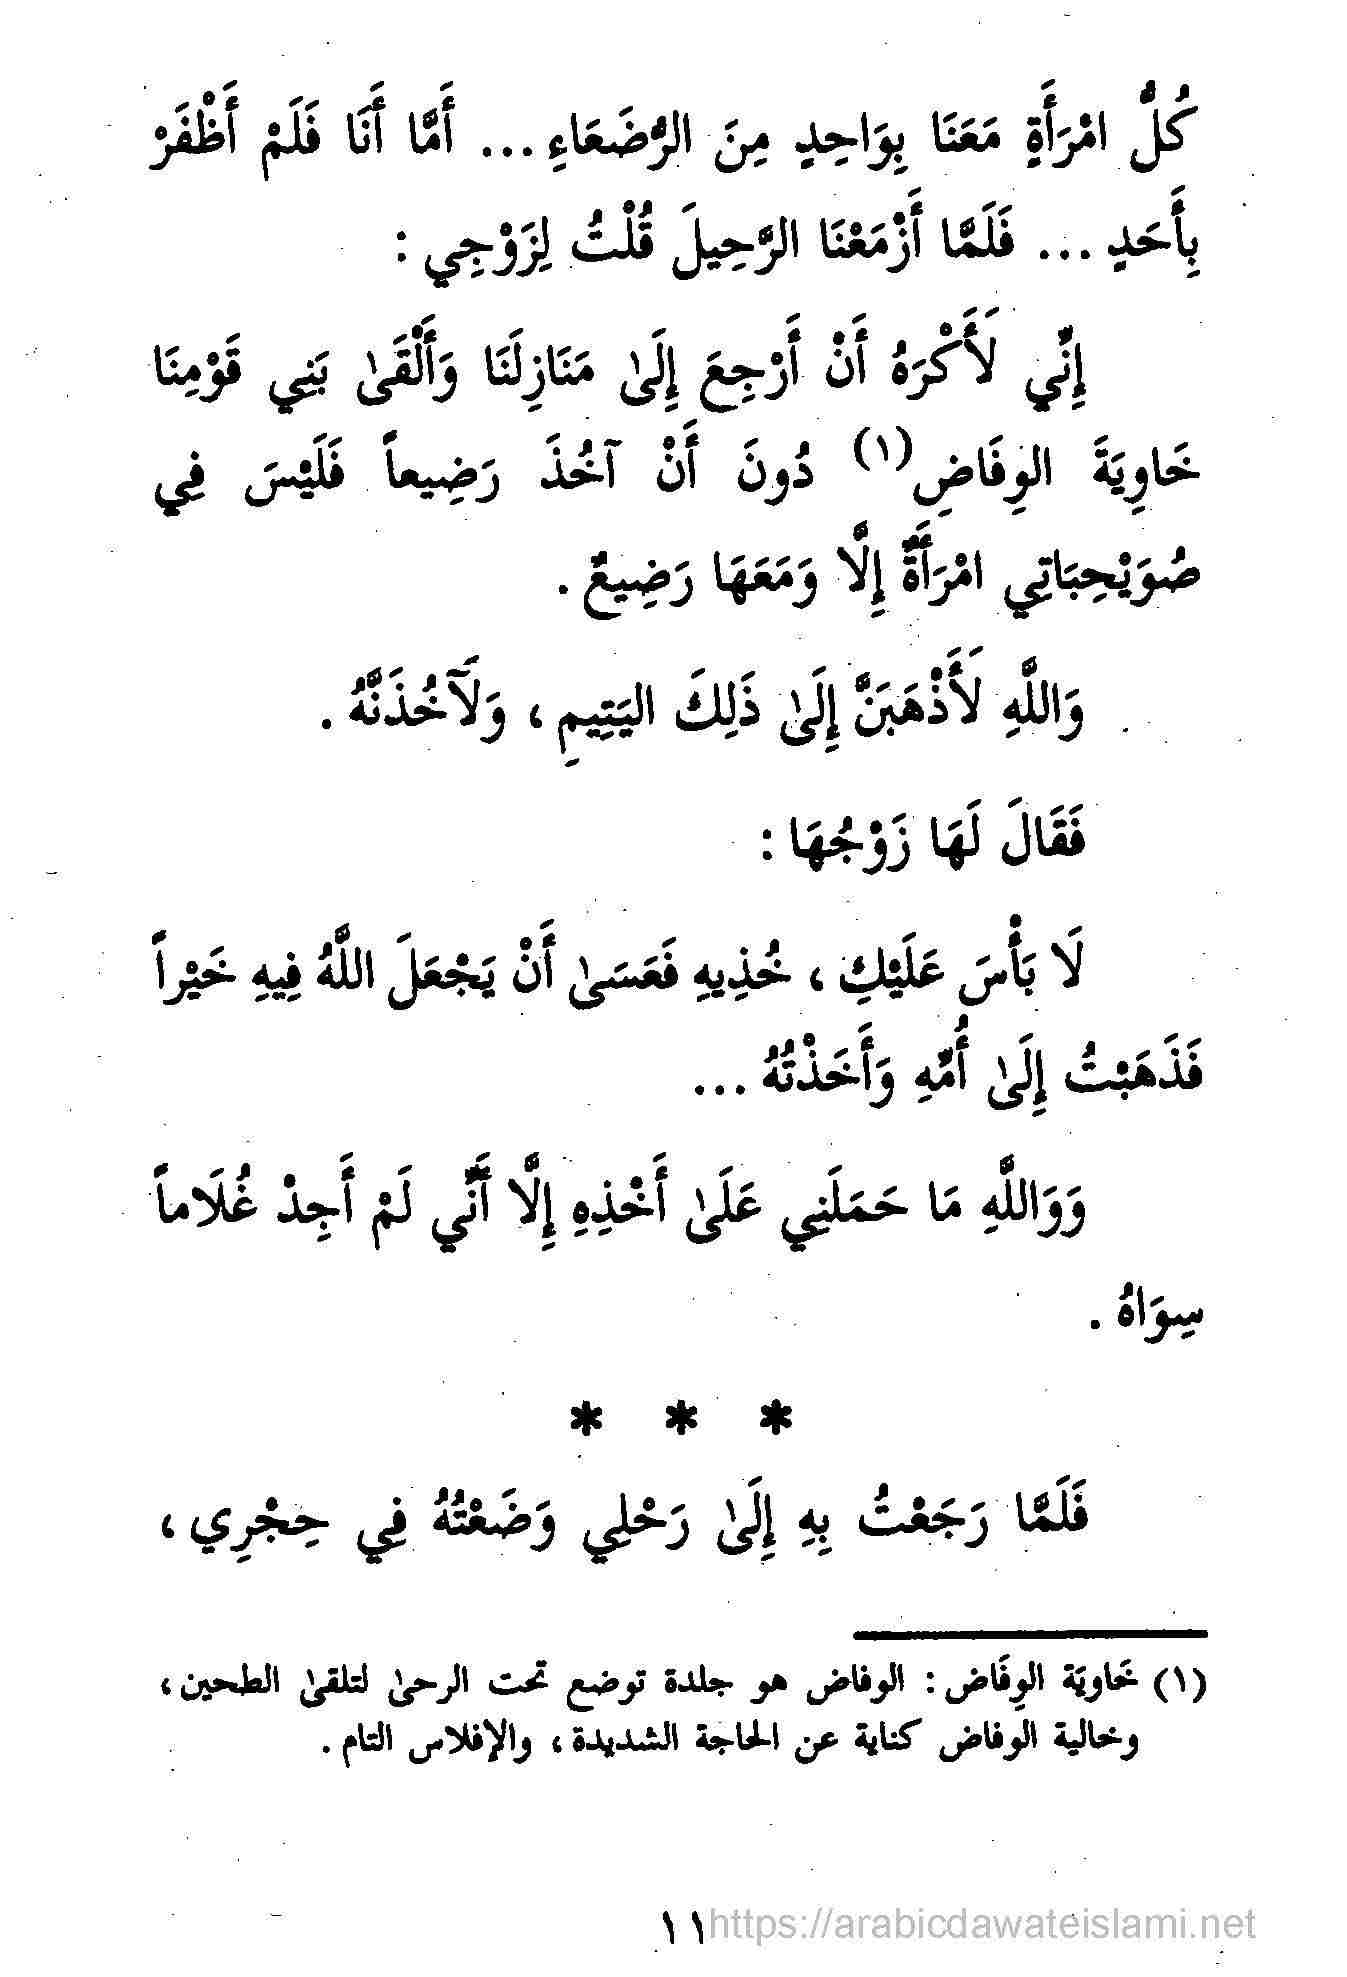 كُلُّ امْرَأَةٍ مَعَنَا بِوَاحِدٍ مِنَ الرُّضَعَاءِ... أَمَّا أَنَا فَلَمْ أَظْفَرْ
بِأَحَدٍ ... فَلَمَّا أَزْمَعْنَا الرَّحِيلَ قُلْتُ لِزَوْجِي :
إِنِّي لَأَكْرَهُ أَنْ أَرْجِعَ إِلَىٰ مَنَازِلَنَا وَأَلْقَىٰ بَنِي قَوْمِنَا
خَاوِيَةَ الوِفَاضِ(١) دُونَ أَنْ آخُذَ رَضِيعاً فَلَيْسَ فِي
صُوَيْحِبَاتِي امْرَأَةٌ إِلَّا وَمَعَهَا رَضِيعٌ .
وَاللَّهِ لَأَذْهَبَنَّ إِلَىٰ ذَلِكَ اليَتِيمِ ، وَلَآخُذَنَّهُ .
فَقَالَ لَهَا زَوْجُهَا :
لَا بَأْسَ عَلَيْكِ ، خُذِيهِ فَعَسَىٰ أَنْ يَجْعَلَ اللَّهُ فِيهِ خَيْراً
فَذَهَبْتُ إِلَىٰ أُمِّهِ وَأَخَذْتُهُ ...
وَوَاللَّهِ مَا حَمَلَنِي عَلَىٰ أَخْذِهِ إِلَّا أَنِّي لَمْ أَجِدْ غُلَاماً
سِوَاهُ .
* * *
فَلَمَّا رَجَعْتُ بِهِ إِلَىٰ رَحْلِي وَضَعْتُهُ فِي حِجْرِي ،
(١) خَاوِيَة الوِفَاض : الوفاض هو جلدة توضع تحت الرحىٰ لتلقىٰ الطحين ،
وخالية الوفاض كناية عن الحاجة الشديدة ، والإفلاس التام .
١١
https://arabicdawateislami.net